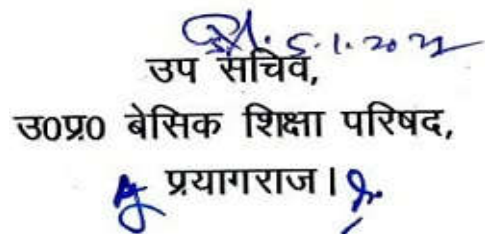 उप सचिव,
उ0प्र0 बेसिक शिक्षा परिषद,
प्रयागराज।